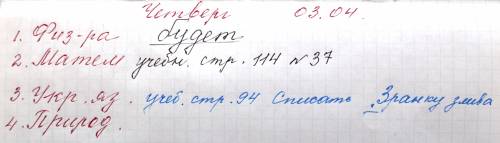 Четверг 03.04.
1. Физ-ра будет
2. Матем учебн. стр. 114 №37
3. Укр. яз. учеб. стр. 94 Списать Зранку злива
4. Природ.